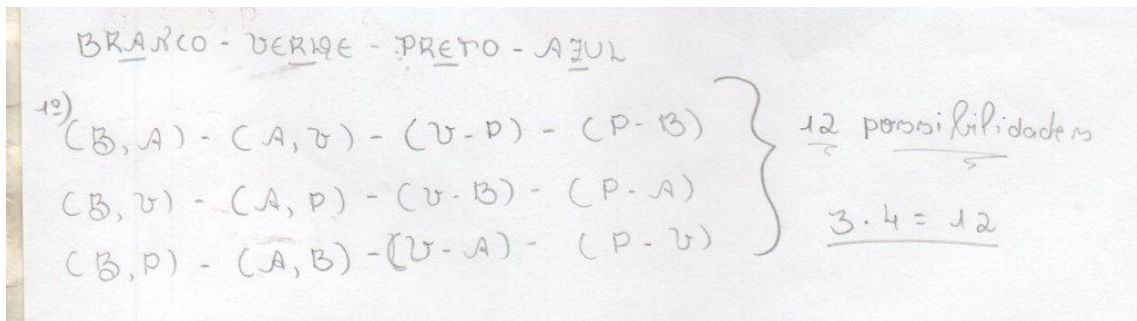 BRANCO - VERDE - PRETO - AZUL
1º)
(B, A) - (A, V) - (V - P) - (P - B)
(B, V) - (A, P) - (V - B) - (P - A)
(B, P) - (A, B) - (V - A) - (P - V)
12 possibilidades
3 . 4 = 12